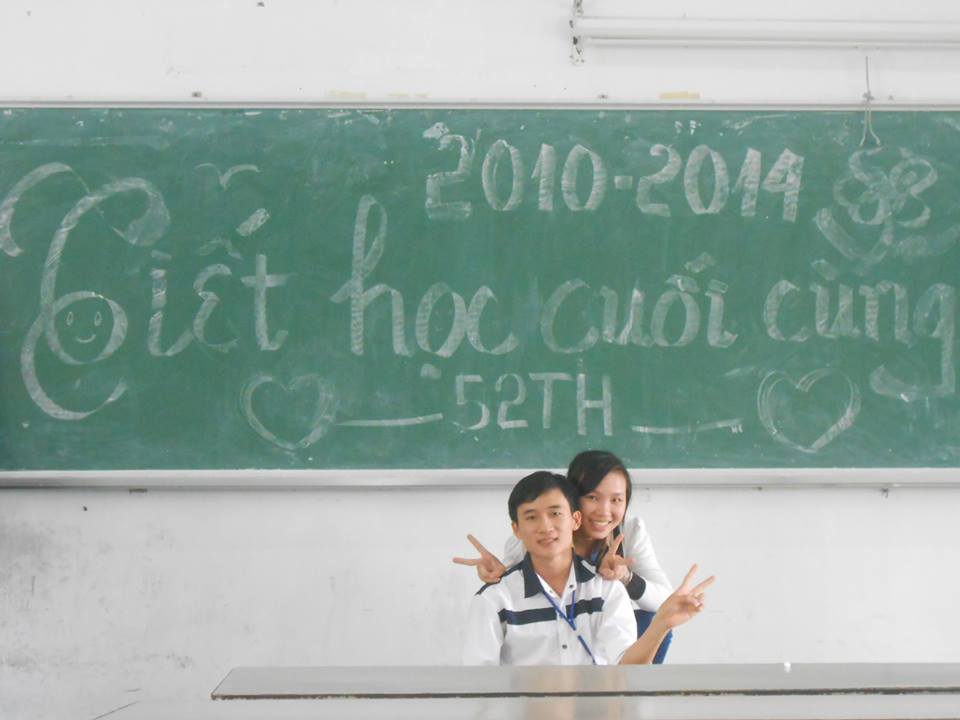 2010-2014
Tiết học cuối cùng
52TH